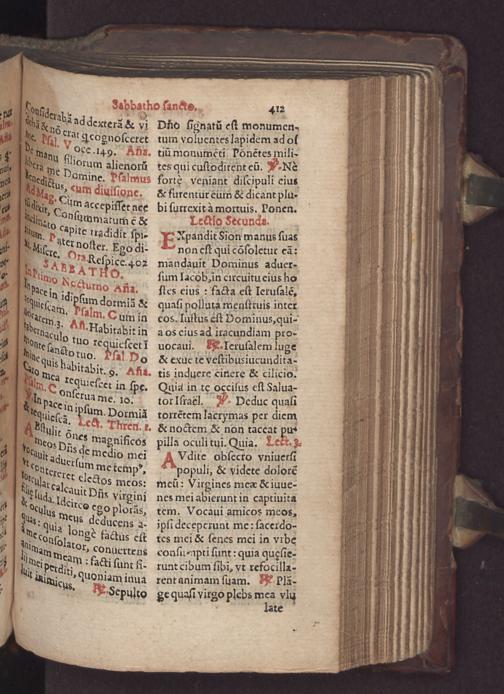 Sabbatho sancto. 412
Considerabā ad dexterā & vi
debā & nō erat q cognosceret
me. Psal. Voce. 149. Aña.
De manu filiorum alienorū
libera me Domine. Psalmus
Benedictus, cum diuisione.
Ad Mag. Cùm accepisset ace
tū dixit, Consummatum ē &
inclinato capite tradidit spi-
ritum. Pater noster. Ego di-
xi. Misere. Ora. Respice. 402
SABBATHO.
In Primo Nocturno Aña.
In pace in idipsum dormiā &
requiescam. Psalm. Cum in
uocarem. 3. Añ. Habitabit in
tabernaculo tuo requiescet I
monte sancto tuo. Psal. Do
mine quis habitabit. 9. Aña.
Caro mea requiescet in spe.
Psalm. Conserua me. 10.
℣. In pace in ipsum. Dormiā
& requiescā. Lect. Thren. 1.
ABstulit ōnes magnificos
meos Dñs de medio mei
vocauit aduersum me tempꝰ,
vt contereret electos meos:
torcular calcauit Dñs virgini
filiæ Iuda. Idcirco ego plorās,
& oculus meus deducens a-
quas: quia longè factus est
à me consolator, conuertens
animam meam: facti sunt fi-
lij mei perditi, quoniam inua
luit inimicus. ℟. Sepulto
Dño signatū est monumen-
tum voluentes lapidem ad os
tiū monumēti Ponētes mili-
tes qui custodirent eū. ℣. Nè
fortè veniant discipuli eius
& furentur eum & dicant plu-
bi surrexit à mortuis. Ponen.
Lectio Secunda.
EXpandit Sion manus suas
non est qui cōsoletur eā:
mandauit Dominus aduer-
sum Iacob, in circuitu eius ho
stes eius: facta est Ierusalē,
quasi polluta menstruis inter
eos. Iustus est Dominus, qui-
a os eius ad iracundiam pro-
uocaui. ℟. Ierusalem luge
& exue te vestibus iucundita-
tis induere cinere & cilicio.
Quia in te occisus est Salua-
tor Israël. ℣. Deduc quasi
torrētem lacrymas per diem
& noctem & non taceat pu-
pilla oculi tui. Quia. Lect. 3.
AVdite obsecro vniuersi
populi, & videte dolorē
meū: Virgines meæ & iuue-
nes mei abierunt in captiuita
tem. Vocaui amicos meos,
ipsi deceperunt me: sacerdo-
tes mei & senes mei in vrbe
consumpti sunt: quia quęsie-
runt cibum sibi, vt refocilla-
rent animam suam. ℟. Plā-
ge quasi virgo plebs mea vlu
late